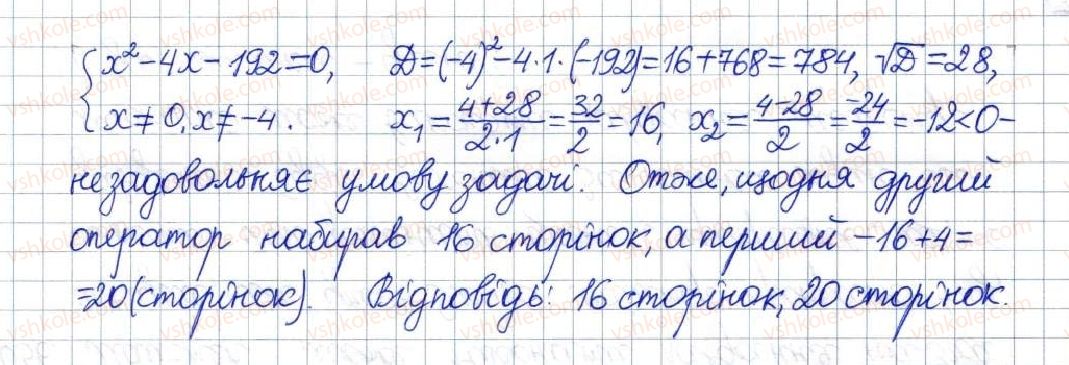 { x² - 4x - 192 = 0, D = (-4)² - 4·1·(-192) = 16 + 768 = 784, √D = 28,
x ≠ 0, x ≠ -4. x₁ = (4+28)/(2·1) = 32/2 = 16, x₂ = (4-28)/2 = -24/2 = -12 < 0 -
не задовольняє умову задачі. Отже, щодня другий
оператор набирав 16 сторінок, а перший - 16 + 4 =
= 20 (сторінок). Відповідь: 16 сторінок; 20 сторінок.